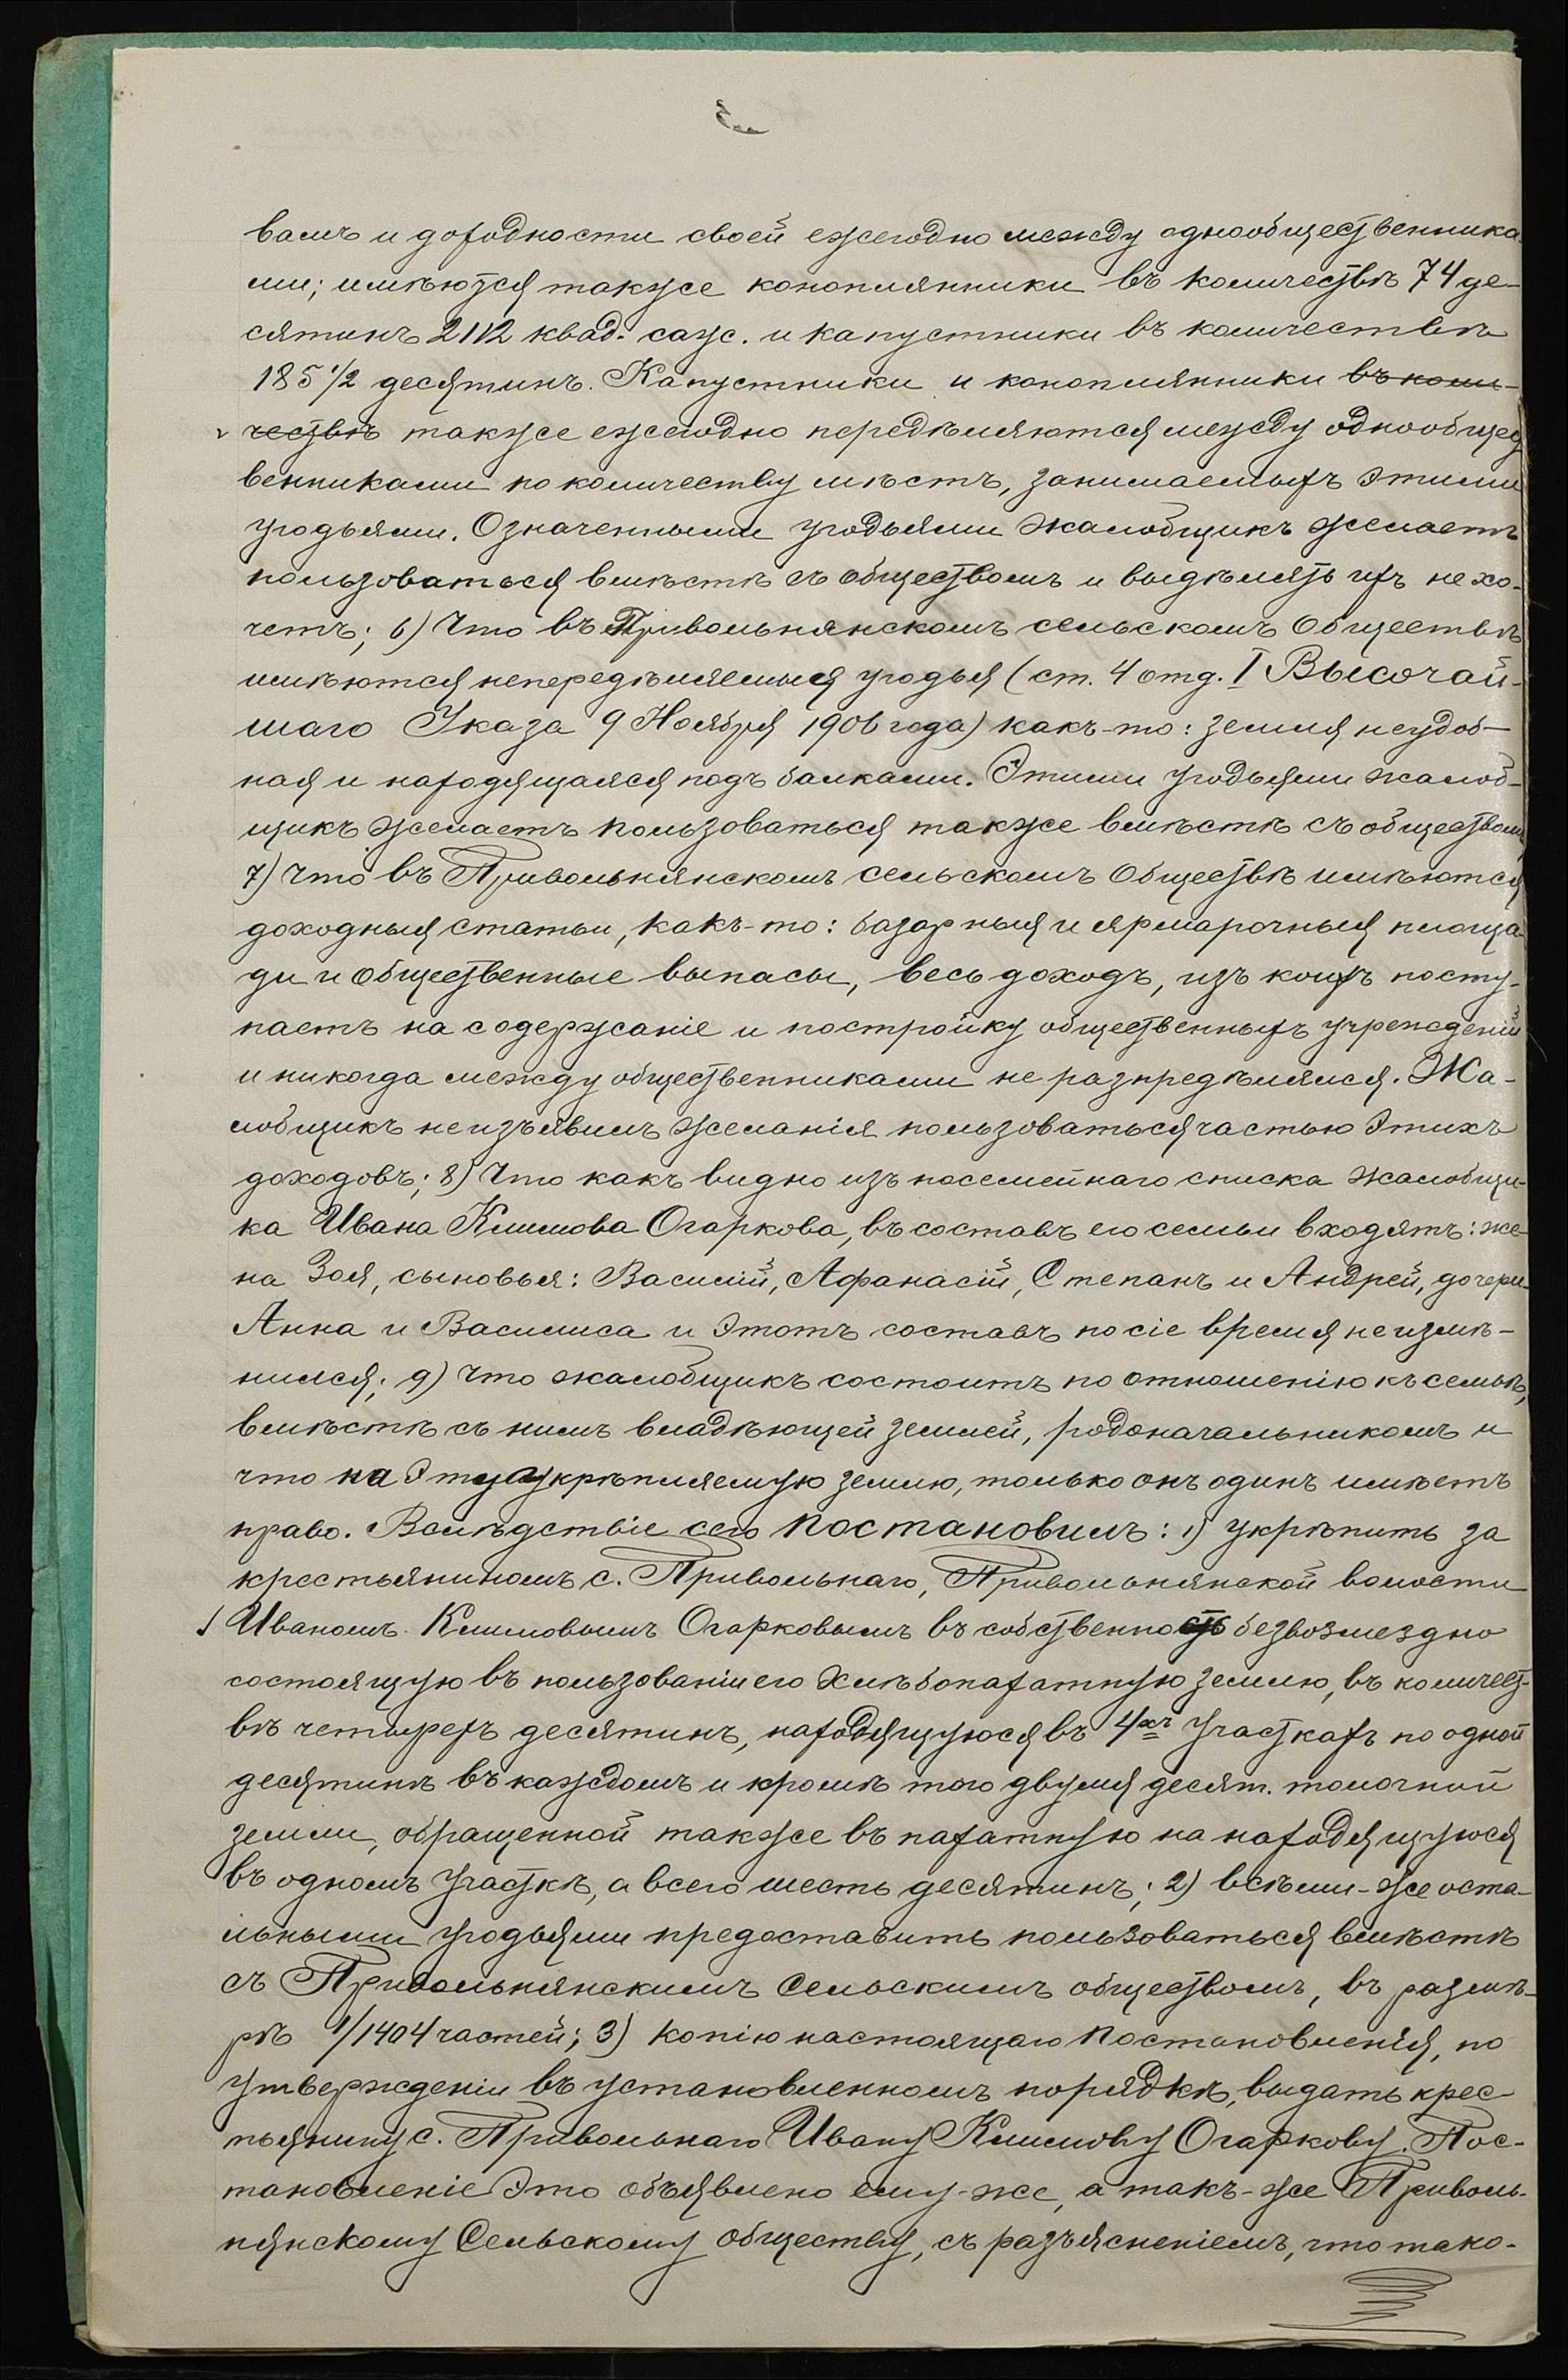 вамъ и доходности своей ежегодно между однообщественника-
ми; имѣются также конопляники въ количествѣ 74 де-
сятинъ 2112 квад. саж. и капустники въ количествѣ
185 1/2 десятинъ. Капустники и конопляники въ коли-
чествѣ также ежегодно передѣляются между однообщес
венниками по количеству мѣстъ, занимаемыхъ этими
угодьями. Означенными угодьями жалобщикъ желаетъ
пользоваться вмѣстѣ съ обществомъ и выдѣлять ихъ не хо-
четъ; 6) Что въ Привольнянскомъ сельскомъ Обществѣ
имѣются непередѣляемыя угодья (ст. 4 отд. I Высочай-
шаго Указа 9 Ноября 1906 года) какъ-то: земля неудоб-
ная и находящаяся подъ балками. Этими угодьями жалоб-
щикъ желаетъ пользоваться также вмѣстѣ съ обществомъ
7) Что въ Привольнянскомъ сельскомъ Обществѣ имѣются
доходныя статьи, какъ-то: базарныя и ярмарочныя площа-
ди и общественные выпасы, весь доходъ, изъ коихъ посту-
паетъ на содержаніе и постройку общественныхъ учрежденій
и никогда между общественниками не разпредѣлялся. Жа-
лобщикъ не изъявилъ желанія пользоваться частью этихъ
доходовъ; 8) Что какъ видно изъ посемейнаго списка жалобщи-
ка Ивана Климова Огаркова, въ составъ его семьи входятъ: же-
на Зоя, сыновья: Василій, Афанасій, Степанъ и Андрей, дочери
Анна и Василиса и этотъ составъ по сіе время не измѣ-
нился; 9) Что жалобщикъ состоитъ по отношенію къ семьѣ,
вмѣстѣ съ нимъ владѣющей землей, родоначальникомъ и
что на эту укрѣпляемую землю, только онъ одинъ имѣетъ
право. Вслѣдствіе сего постановилъ: 1) укрѣпить за
крестьяниномъ с. Привольнаго, Привольнянской волости
Иваномъ Климовымъ Огарковымъ въ собственность безвозмездно
состоящую въ пользованіи его хлѣбопахатную землю, въ количест-
вѣ четырехъ десятинъ, находящуюся въ 4хъ участкахъ по одной
десятинѣ въ каждомъ и кромѣ того двумя десят. толочной
земли, обращенной также въ пахатную на находящуюся
въ одномъ участкѣ, а всего шесть десятинъ; 2) всѣми-же оста-
льными угодьями предоставить пользоваться вмѣстѣ
съ Привольнянскимъ Сельскимъ обществомъ, въ размѣ-
рѣ 1/1404 частей; 3) копію настоящаго постановленія, по
утвержденіи въ установленномъ порядкѣ, выдать крес-
тьянину с. Привольнаго Ивану Климову Огаркову. Пос-
тановленіе это объявлено ему-же, а такъ-же Приволь-
нянскому Сельскому обществу, съ разъясненіемъ, что тако-